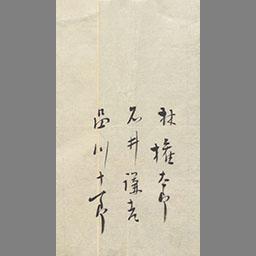 林権太郎
石井謹吾
品川十郎